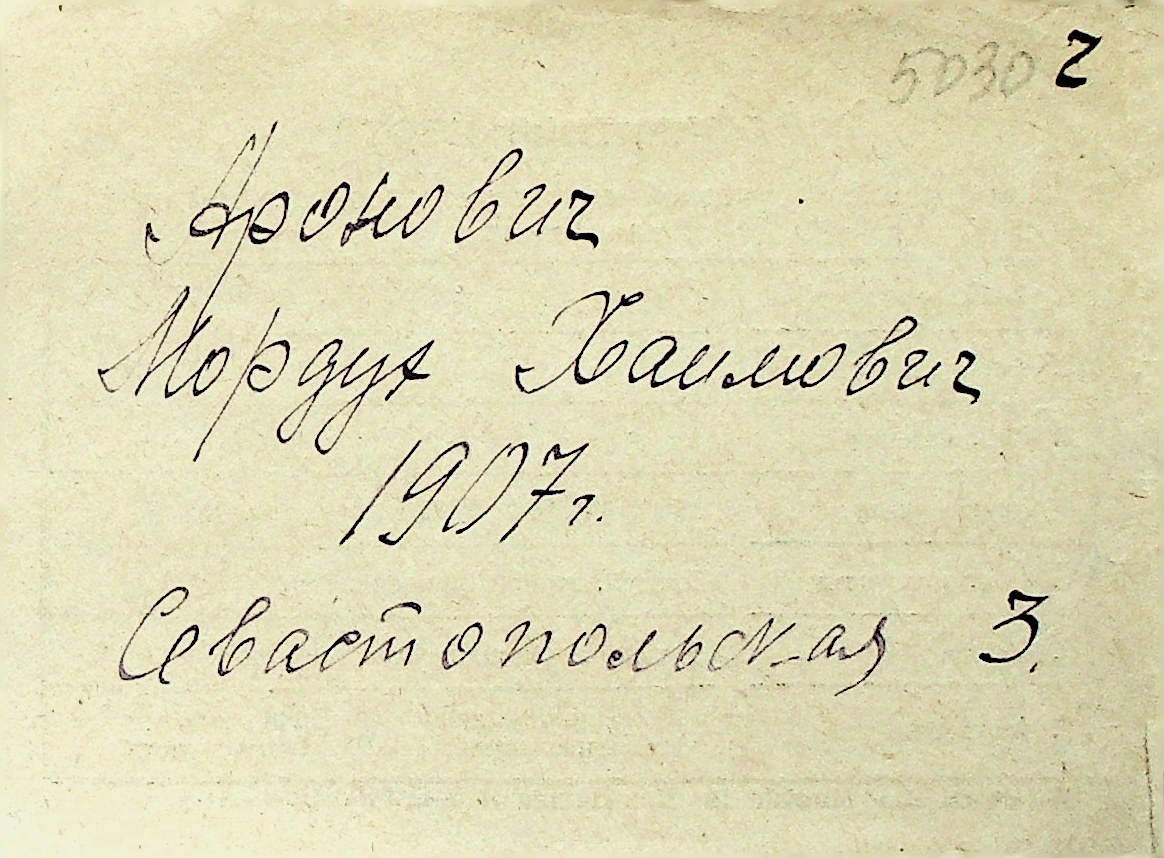 5030 г
Аронович
Мордух Хаимович
1907 г.
Севастопольская 3.